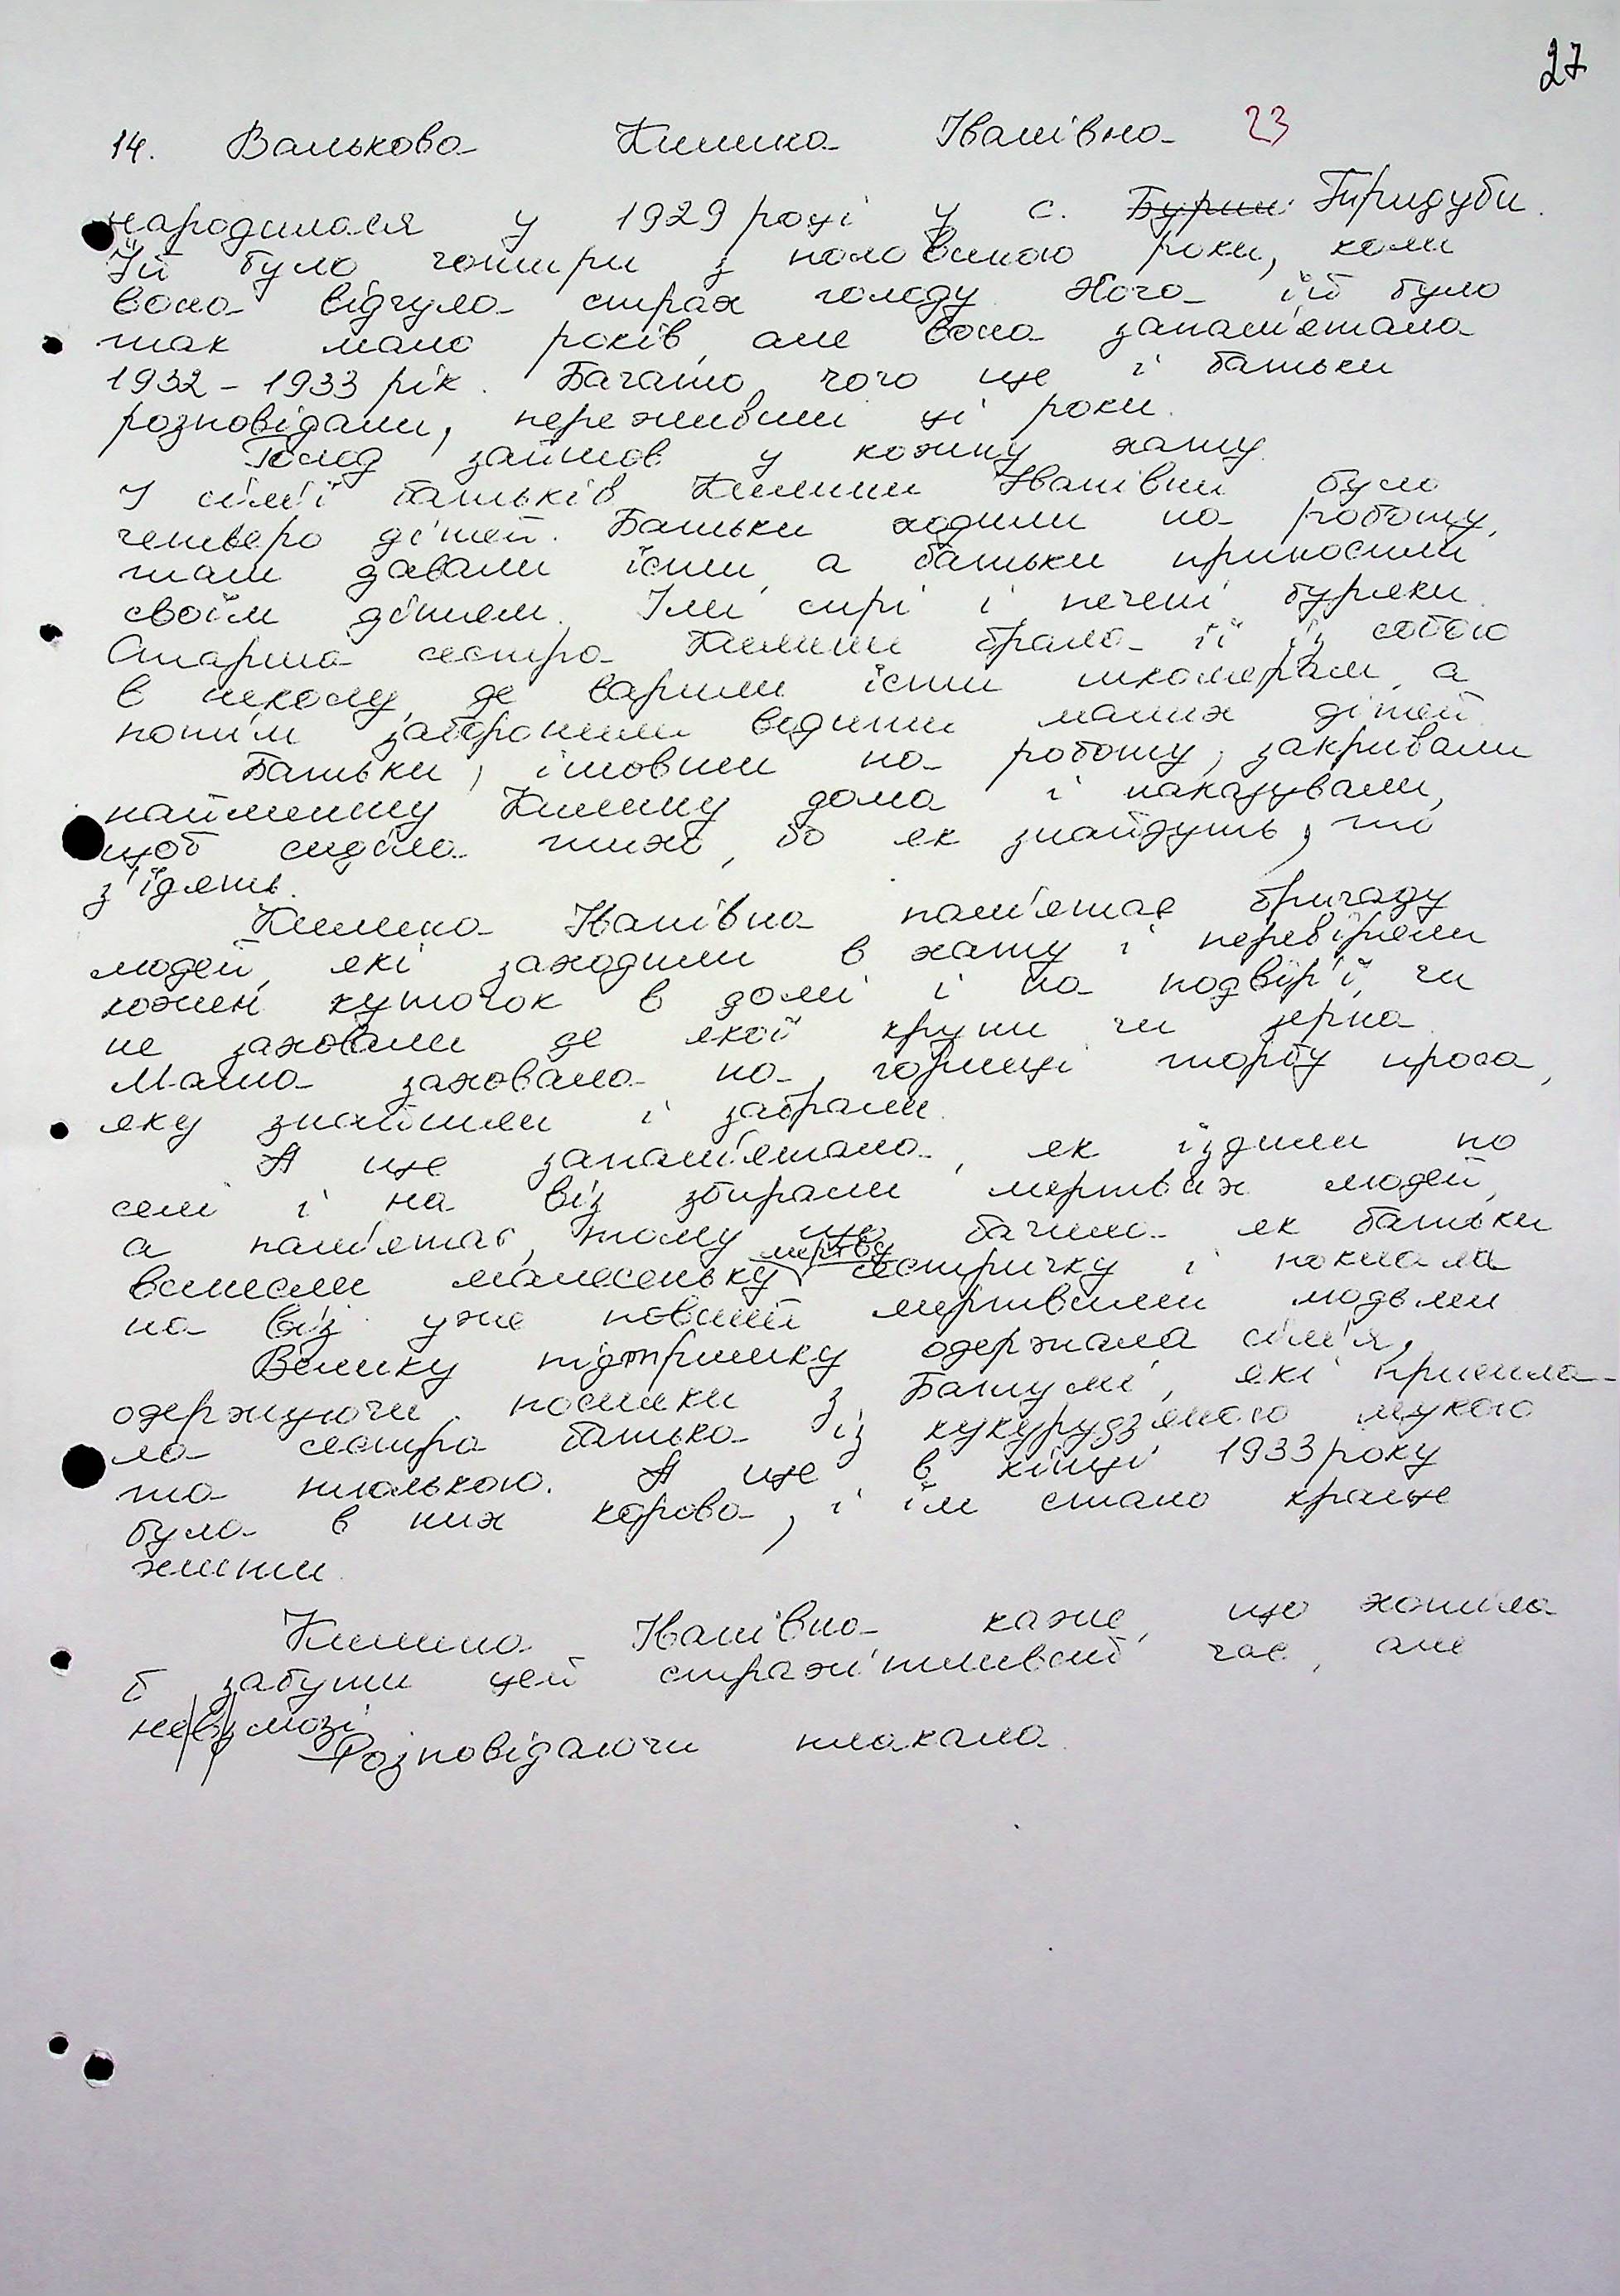 27
14. Валькова Килина Іванівна 23
народилася у 1929 році у с. Гиридуби.
Їй було чотири з половиною роки, коли
вона відчула страх голоду. Хоча їй було
так мало років, але вона запам'ятала
1932 - 1933 рік. Багато, чого ще і батьки
розповідали, переживши ці роки.
Голод зайшов у кожну хату.
У сім'ї батьків Килини Іванівни було
четверо дітей. Батьки ходили на роботу,
там давали їсти, а батьки приносили
своїм дітям. Їлі сирі і печені буряки.
Старша сестра Килини брала її із собою
в школу, де варили їсти школярам, а
потім заборонили водити малих дітей.
Батьки, ішовши на роботу, закривали
найменшу Килину дома і наказували,
щоб сиділа тихо, бо як знайдуть, то
з'їдять.
Килина Іванівна пам'ятає бригаду
людей, які заходили в хату і перевіряли
кожен куточок в домі і на подвір'ї, чи
не заховали де якої крупи чи зерна.
Мама заховала на горищі торбу проса,
яку знайшли і забрали.
А ще запам'ятала, як їздили по
селі і на віз збирали мертвих людей,
а пам'ятає, тому що бачила як батьки
винесли малесеньку мертву сестричку і поклали
на віз уже повний мертвими людьми
Велику підтримку одержала сім'я,
одержуючи посилки з Батумі, які присила-
ла сестра батька із кукурудзяною мукою
та тюлькою. А ще в кінці 1933 року
була в них корова, і їм стало краще
жити.
Килина Іванівна каже, що хотіла
б забути цей страхітливий час, але
не в змозі.
Розповідаючи плакала.